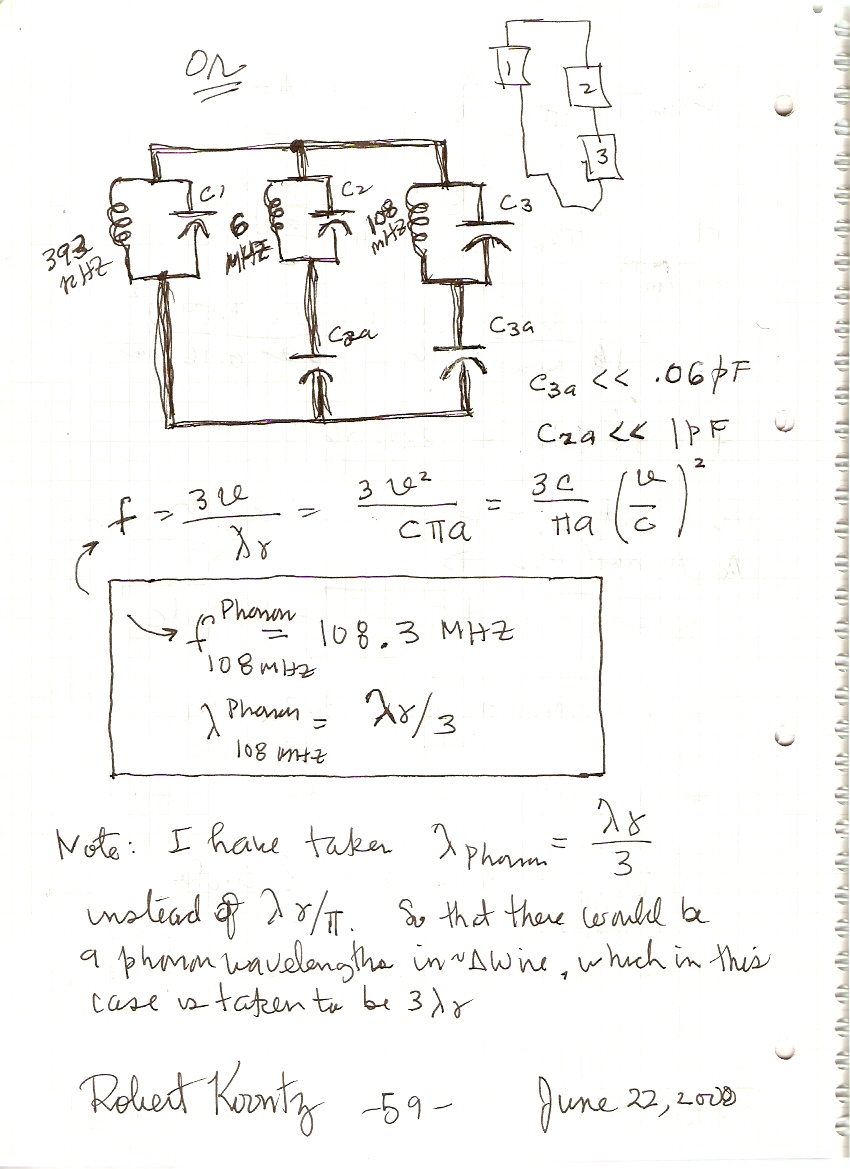 OR
1
2
3
C1
C2
C3
393 KHZ
6 MHZ
108 MHZ
C2a
C3a
C3a << .06 pF
C2a << 1 pF
f = 3v/λγ = 3v²/cπa = 3c/πa (v/c)²
f Phonon 108 MHZ = 108.3 MHZ
λ Phonon 108 MHZ = λγ/3
Note: I have taken λ phonon = λγ/3
instead of λγ/π. So that there would be
9 phonon wavelengths in ~ΔWire, which in this
case is taken to be 3λγ
Robert Koontz -59- June 22,